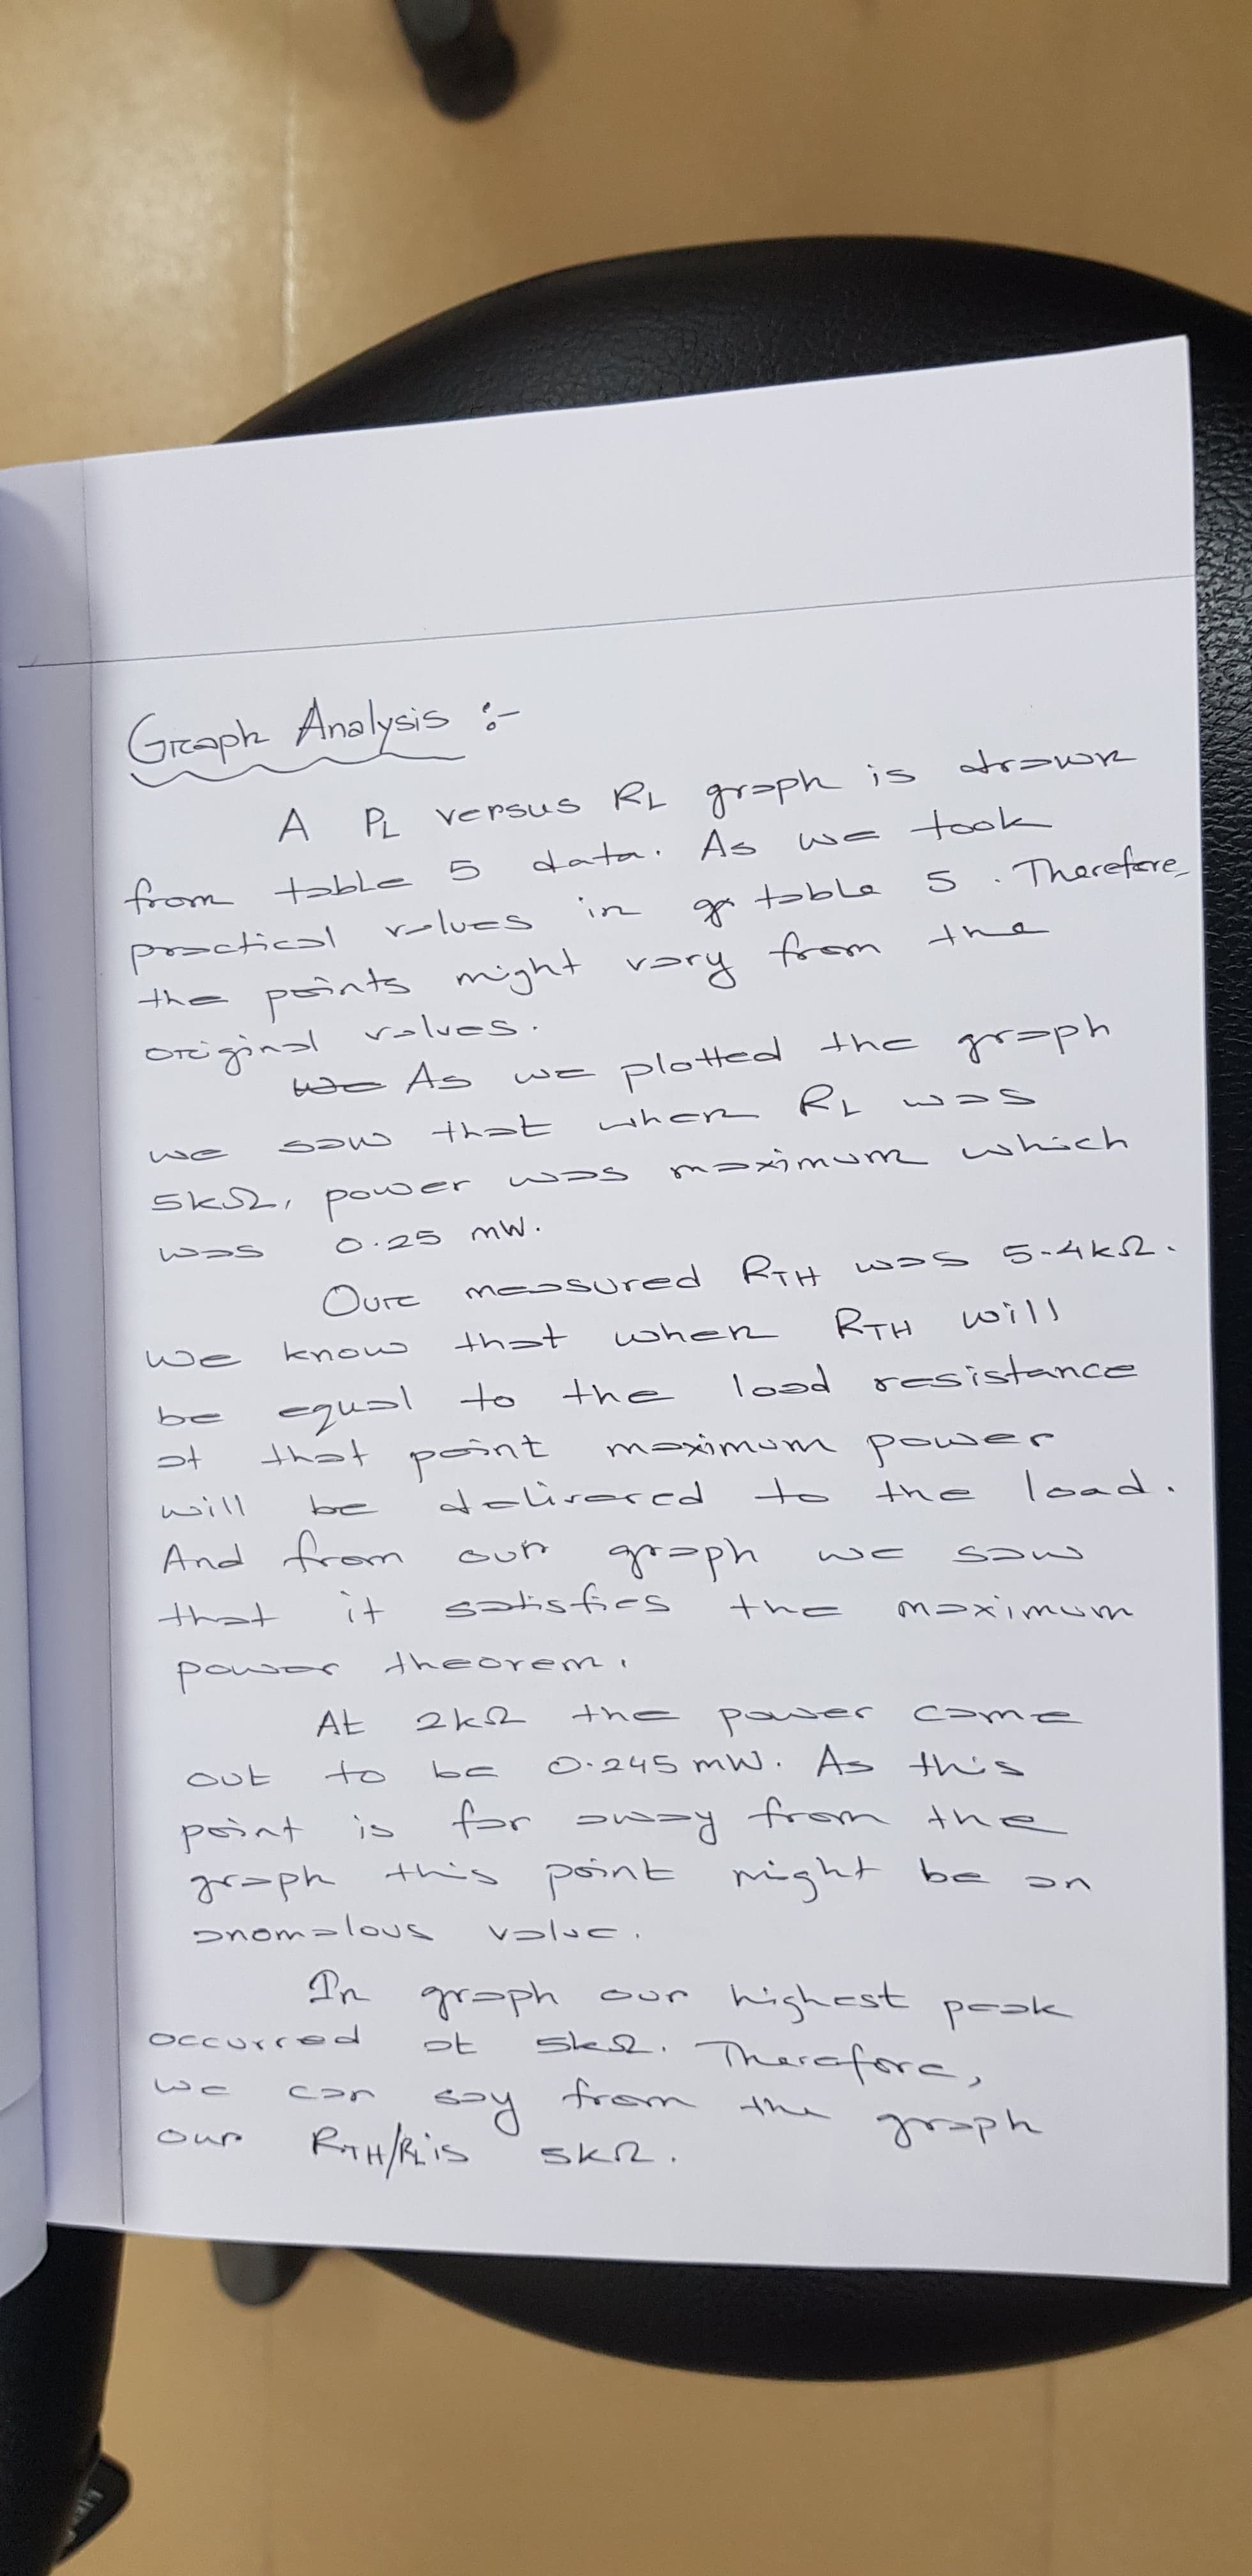 Graph Analysis :-
A PL versus RL graph is drawn
from table 5 data. As we took
practical values in table 5. Therefore,
the points might vary from the
original values.
We As we plotted the graph
we saw that when RL was
5kΩ, power was maximum which
was 0.25 mW.
Our measured RTH was 5.4kΩ.
We know that when RTH will
be equal to the load resistance
at that point maximum power
will be delivered to the load.
And from our graph we saw
that it satisfies the maximum
power theorem.
At 2kΩ the power came
out to be 0.245 mW. As this
point is far away from the
graph this point might be an
anomalous value.
In graph our highest peak
occurred at 5kΩ. Therefore,
we can say from the graph
our RTH/RL is 5kΩ.